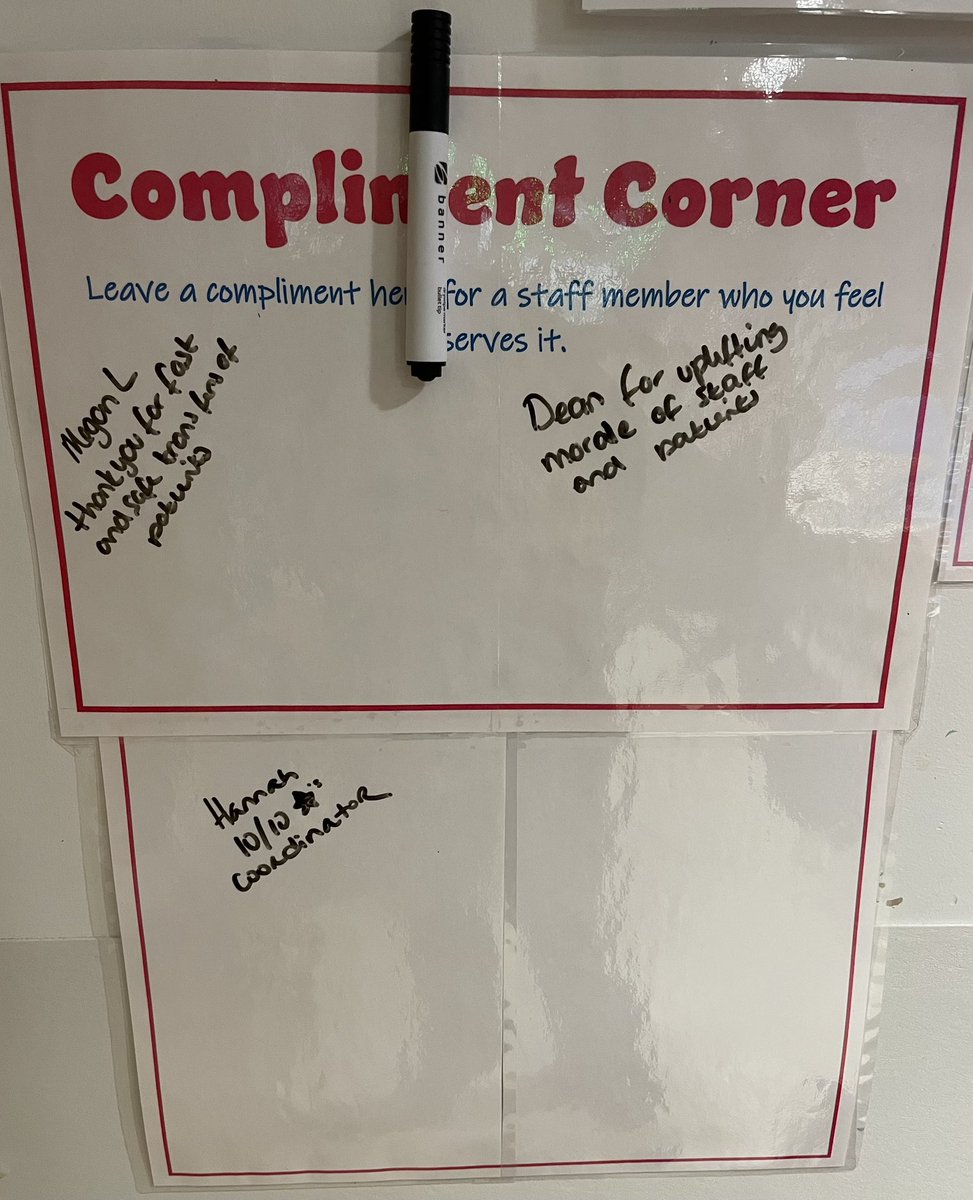 Compliment Corner
Leave a compliment here for a staff member who you feel
serves it.
banner
bullet tip
Megan L
thank you for fast
and safe transfers of
patients
Dean for uplifting
morale of staff
and patients
Hannah
10/10 ★'s
coordinator